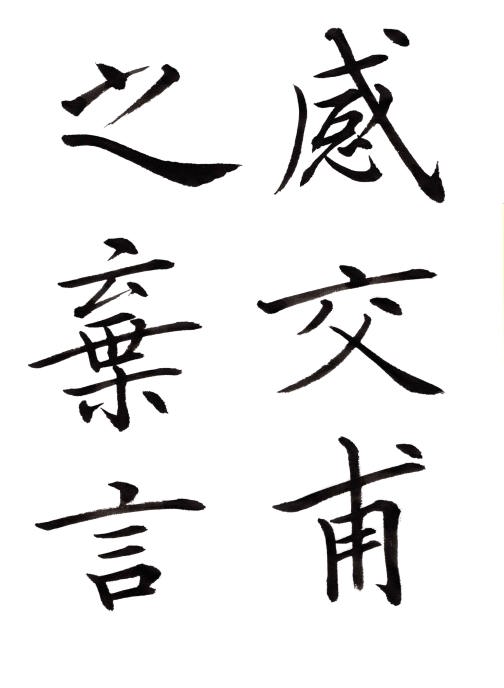 感交甫
之棄言